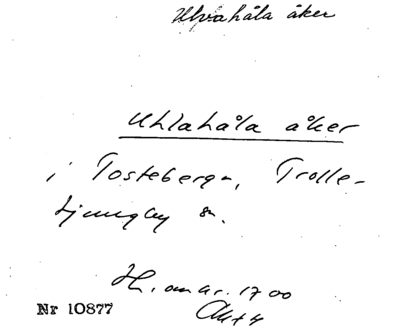 Ulvahåla åker
Uhlahåla åker
i Tosteberga, Trolle-
Ljungby sn.
H. omkr. 1700
Akt 4
Nr 10877